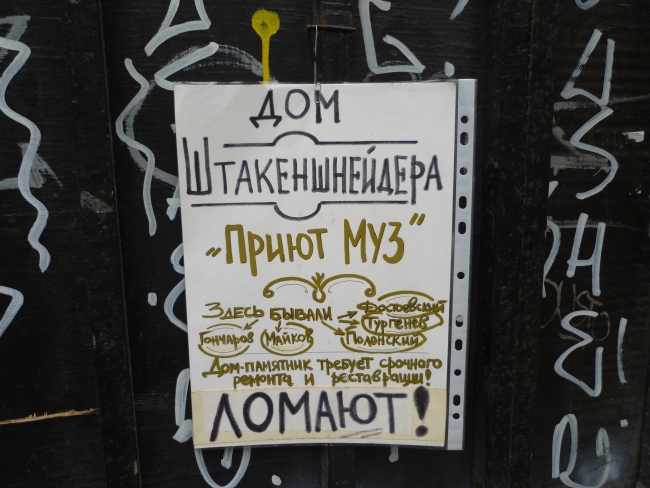 ДОМ
ШТАКЕНШНЕЙДЕРА
„ПРИЮТ МУЗ"
ЗДЕСЬ БЫВАЛИ Достоевский
Тургенев
Гончаров Майков Полонский
Дом-памятник требует срочного
ремонта и реставрации!
ЛОМАЮТ!